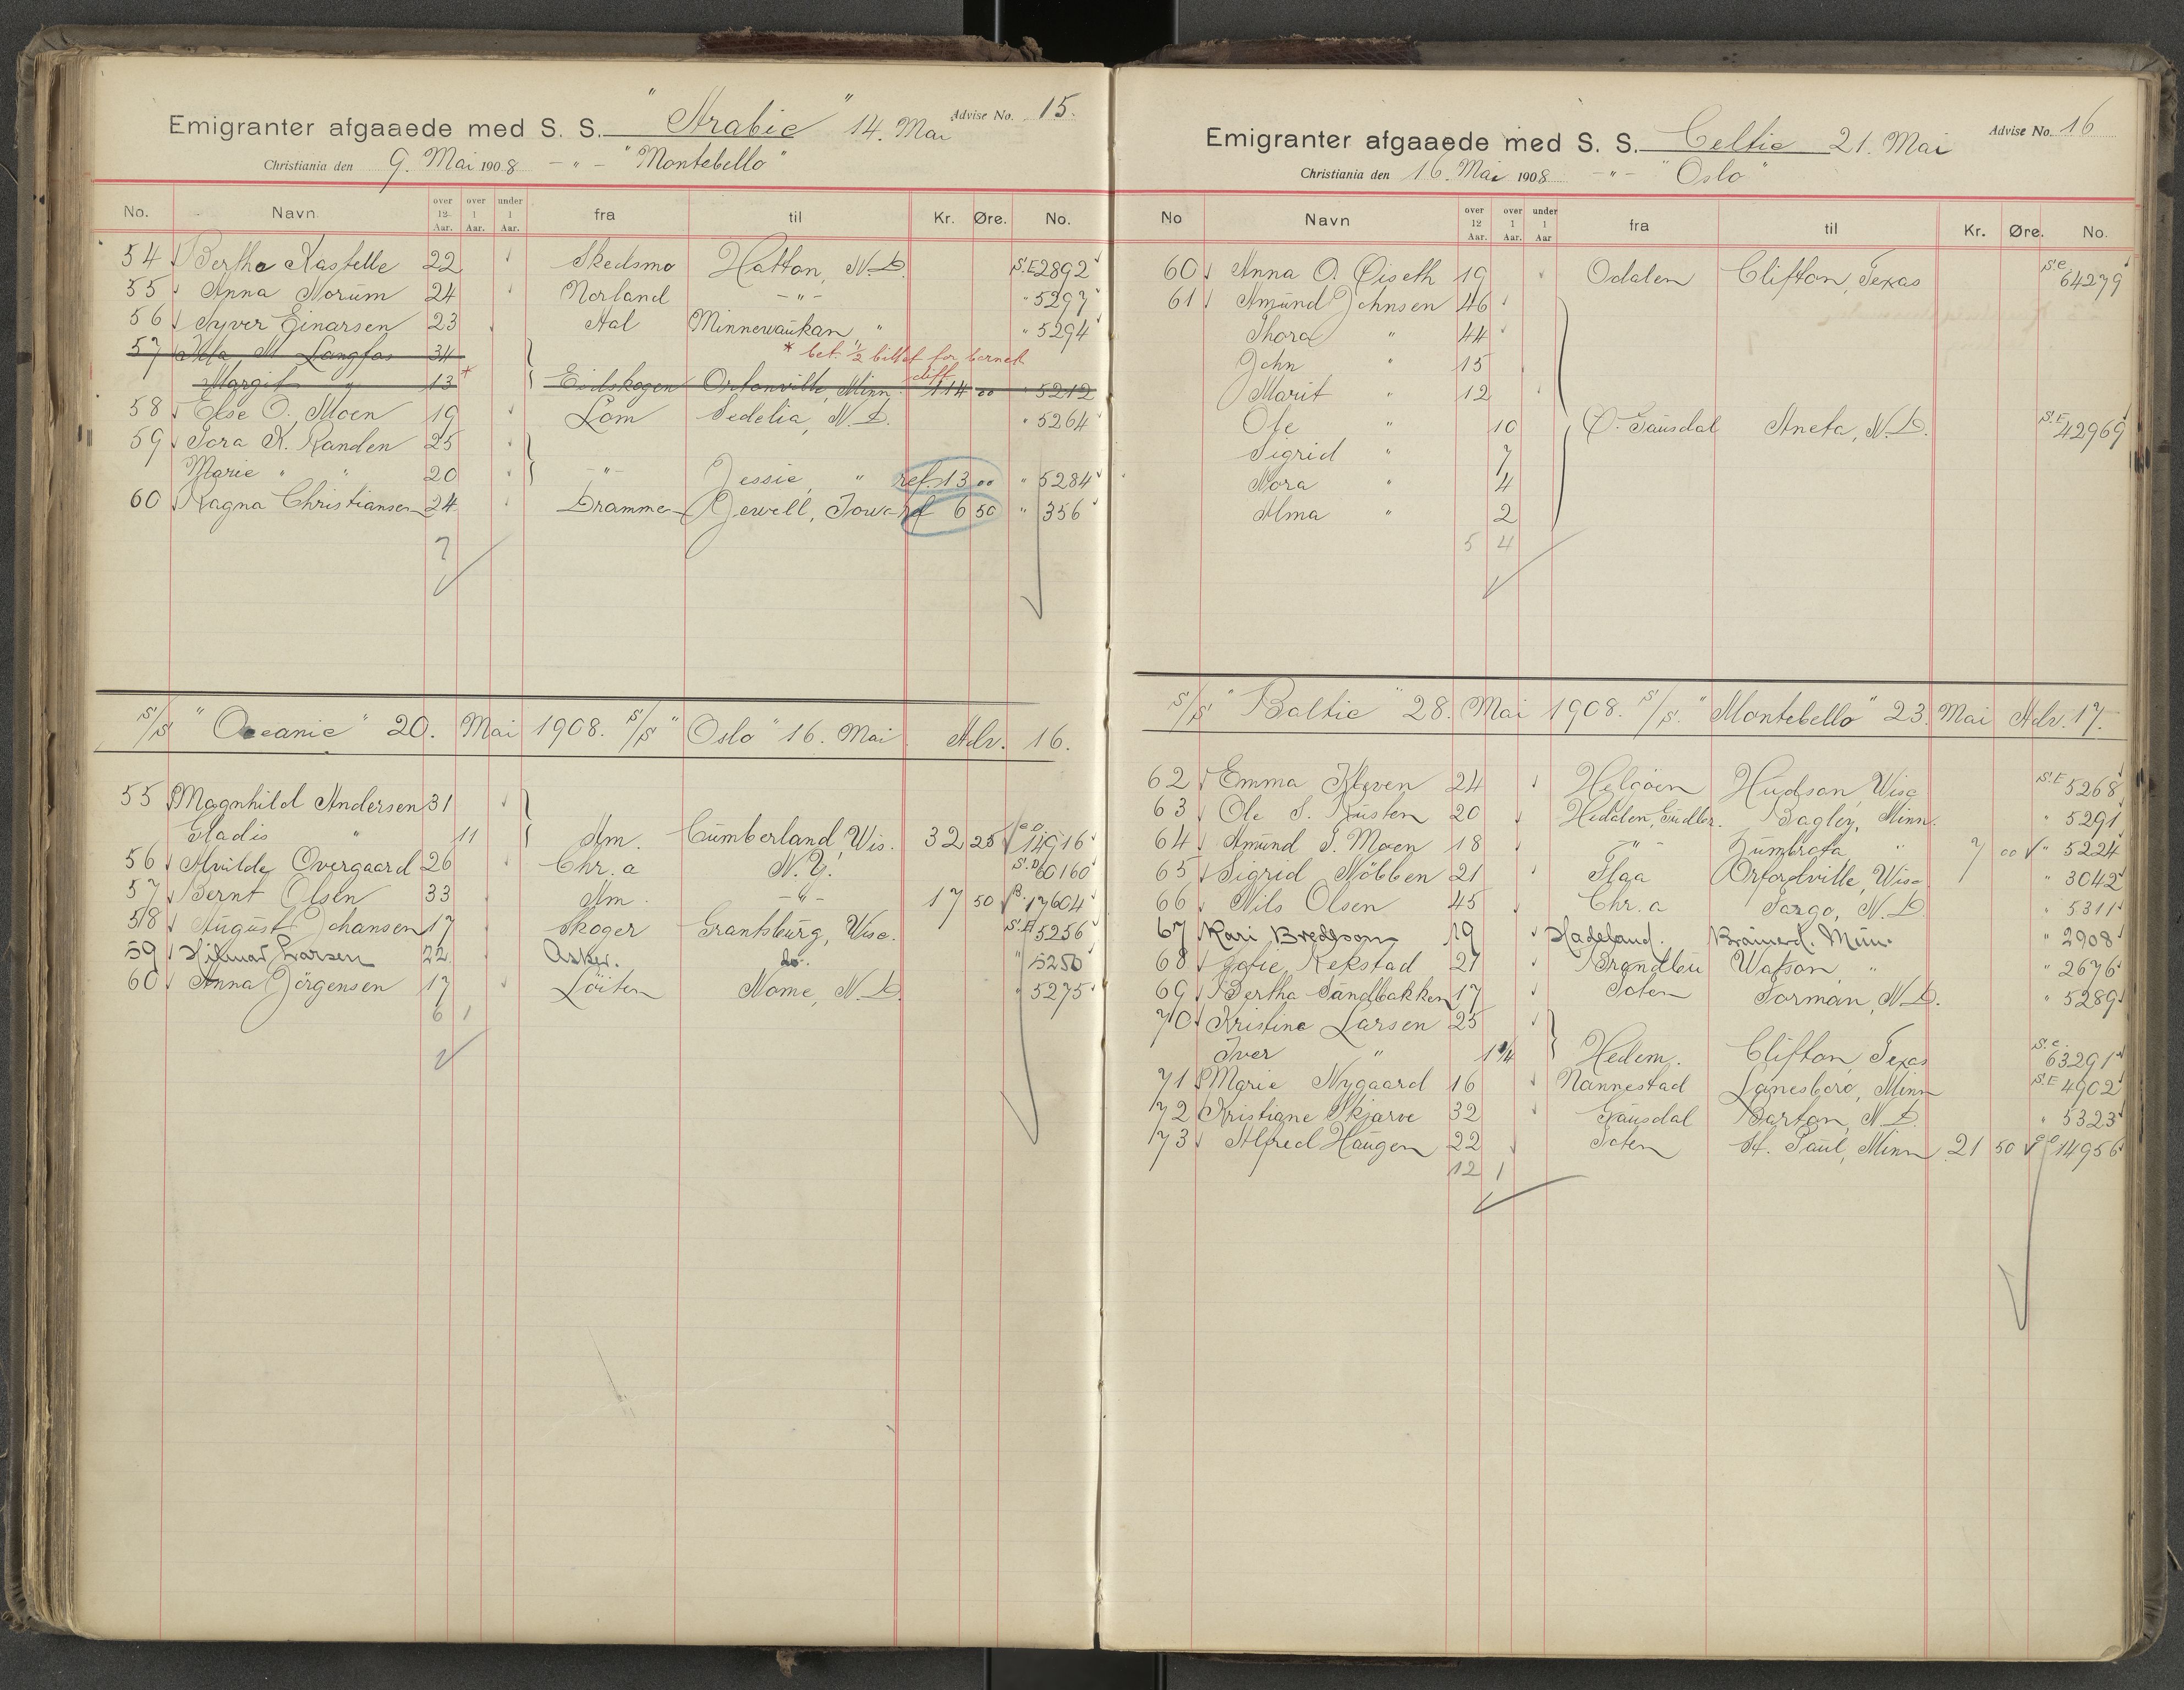 Emigranter afgaaede med S. S. "Arabic" 14. Mai Advise No. 15.
Christiania den 9. Mai 1908 - " - "Montebello"
No. Navn over 12 Aar. over 1 Aar. under 1 Aar. fra til Kr. Øre. No.
54 Bertha Kastelle 22 Skedsmo Hatton, N.D. S.E. 2892
55 Anna Norum 24 Norland - " - " 5297
56 Syver Einarsen 23 Aal Minnewaukan, " " 5294
57 M. Langfos 34 * bet. 1/2 billet for barnet
Margit " 13 * Eidskogen Ortonville, Minn. diff 114 00 " 5212
58 Else O. Moen 19 Lom Sedelia, N.D. " 5264
59 Tora K. Randen 25
Marie " " 20 - " - Jessie, " ref. 13 00 " 5284
60 Ragna Christiansen 24 Drammen Jewell, Iowa ref 6 50 " 356
7
S/S "Oceanic" 20. Mai 1908. S/S "Oslo" 16. Mai Adv. 16.
55 Magnhild Andersen 31
Gladis " 11 Am. Cumberland, Wis. 32 25 14916
56 Alvilde Overgaard 26 Chr.a N.Y. S.D. 60160
57 Bernt Olsen 33 Am. - " - 17 50 B. 17604
58 August Johansen 17 Skoger Grantsburg, Wisc. S.E. 5256
59 Hilmar Larsen 22 Asker. do. " 5250
60 Anna Jörgensen 17 Löiten Nome, N.D. " 5275
6 1
Emigranter afgaaede med S. S. Celtic 21. Mai Advise No. 16
Christiania den 16. Mai 1908 - " - "Oslo"
No Navn over 12 Aar. over 1 Aar. under 1 Aar fra til Kr. Øre. No.
60 Anna O. Öiseth 19 Odalen Clifton, Texas S.C. 64279
61 Amund Johnsen 46
Thora " 44
John " 15
Marit " 12
Ole " 10 Ö. Gausdal Aneta, N.D. S.E. 42969
Sigrid " 7
Nora " 4
Alma " 2
5 4
S/S "Baltic" 28. Mai 1908. S/S. "Montebello" 23. Mai Adv. 17.
62 Emma Kleven 24 Helgöen Hudson, Wisc S.E 5268
63 Ole S. Rusten 20 Hedalen, Gudbr. Bagley, Minn. " 5291
64 Amund S. Moen 18 - " - Zumbrota " 7 00 " 5224
65 Sigrid Nöbben 21 Flaa Orfordville, Wisc " 3042
66 Nils Olsen 45 Chr.a Fargo, N.D. " 5311
67 Kari Bredeson 19 Hadeland. Brainerd. Minn. " 2908
68 Gofie Rekstad 21 Brandbu Watson " " 2676
69 Bertha Sandbakken 17 Toten Forman, N.D. " 5289
70 Kristine Larsen 25
Iver " 1 3/4 Hedem. Clifton, Texas S.C. 63291
71 Marie Nygaard 16 Nannestad Lanesboro, Minn S.E 4902
72 Kristiane Skjarve 32 Gausdal Barton, N.D. " 5323
73 Alfred Haugen 22 Toten St. Paul, Minn 21 50 14956
12 1